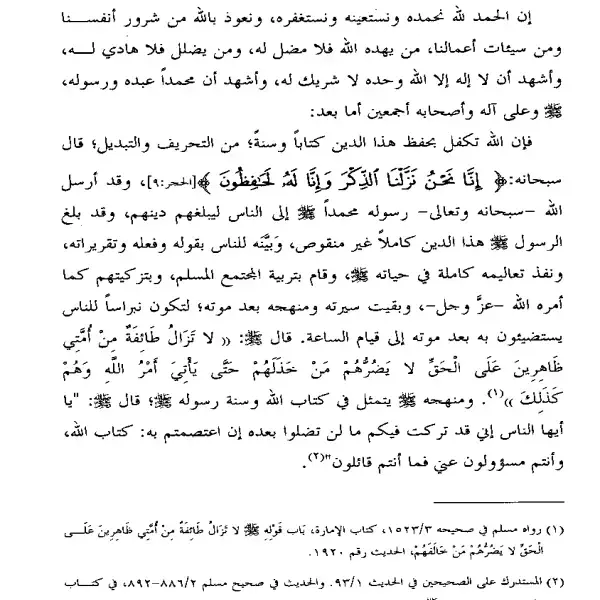 إن الحمد لله نحمده ونستعينه ونستغفره، ونعوذ بالله من شرور أنفســنا
ومن سيئات أعمالنا، من يهده الله فلا مضل له، ومن يضلل فلا هادي لــه،
وأشهد أن لا إله إلا الله وحده لا شريك له، وأشهد أن محمداً عبده ورسوله،
ﷺ وعلى آله وأصحابه أجمعين أما بعد:
فإن الله تكفل بحفظ هذا الدين كتاباً وسنةً؛ من التحريف والتبديل؛ قال
سبحانه:﴿ إِنَّا نَحْنُ نَزَّلْنَا ٱلذِّكْرَ وَإِنَّا لَهُۥ لَحَـٰفِظُونَ ﴾[الحجر:٩]، وقد أرسل
الله –سبحانه وتعالى– رسوله محمداً ﷺ إلى الناس ليبلغهم دينهم، وقد بلغ
الرسول ﷺ هذا الدين كاملاً غير منقوص، وَبيَّنَه للناس بقوله وفعله وتقريراته،
ونفذ تعاليمه كاملة في حياته ﷺ، وقام بتربية المجتمع المسلم، وبتزكيتهم كما
أمره الله –عزَّ وجل–، وبقيت سيرته ومنهجه بعد موته؛ لتكون نبراساً للناس
يستضيئون به بعد موته إلى قيام الساعة. قال ﷺ: « لا تَزَالُ طَائِفَةٌ مِنْ أُمَّتِي
ظَاهِرِينَ عَلَى الْحَقِّ لا يَضُرُّهُمْ مَنْ خَذَلَهُمْ حَتَّى يَأْتِيَ أَمْرُ اللَّهِ وَهُمْ
كَذَلِكَ »(١). ومنهجه ﷺ يتمثل في كتاب الله وسنة رسوله ﷺ؛ قال ﷺ: "يا
أيها الناس إني قد تركت فيكم ما لن تضلوا بعده إن اعتصمتم به: كتاب الله،
وأنتم مسؤولون عني فما أنتم قائلون"(٢).
(١) رواه مسلم في صحيحه ١٥٢٣/٣، كتاب الإمارة، بَاب قَوْلِهِ ﷺ لا تَزَالُ طَائِفَةٌ مِنْ أُمَّتِي ظَاهِرِينَ عَلَــى
الْحَقِّ لا يَضُرُّهُمْ مَنْ خَالَفَهُمْ، الحديث رقم ١٩٢٠.
(٢) المستدرك على الصحيحين في الحديث ٩٣/١. والحديث في صحيح مسلم ٨٨٦/٢–٨٩٢، في كتــاب